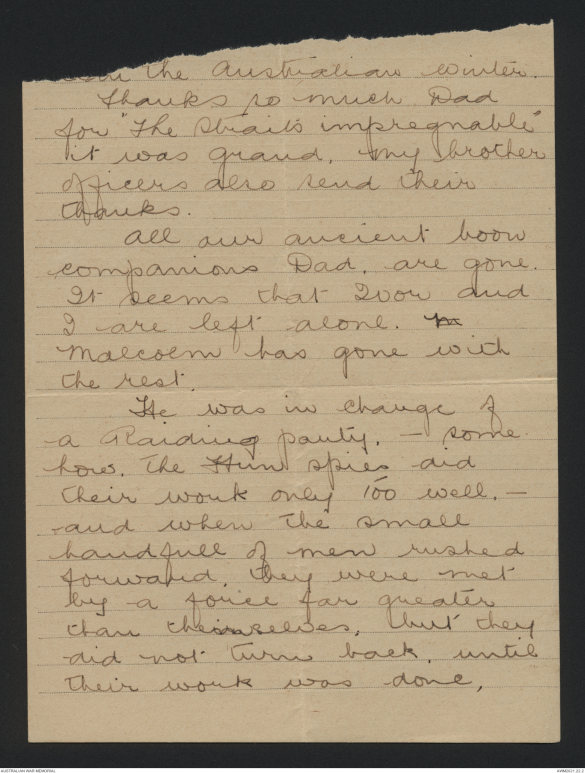 than the Australian winter.
Thanks so much Dad
for "The Straits impregnable"
it was grand. My brother
officers also send their
thanks.
All our ancient boon
companions Dad, are gone.
It seems that Ivor and
I are left alone. M
Malcolm has gone with
the rest.
He was in charge of
a Raiding party. — some
how. The Hun spies did
their work only too well. —
and when the small
handfull of men rushed
forward, they were met
by a force far greater
than themselves, but they
did not turn back, until
their work was done,
AUSTRALIAN WAR MEMORIAL